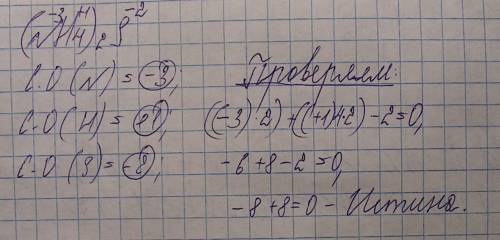 (N⁻³H⁺₄)₂S⁻²
С.О (N) = -3;
С.О (H) = +1;
С.О (S) = -2;
Проверяем:
((-3)·2) + ((+1)4·2) - 2 = 0,
-6 + 8 - 2 = 0,
-8 + 8 = 0 - Истина.